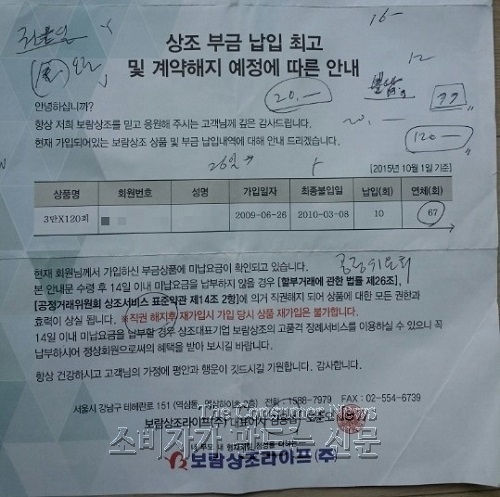 16-
상조 부금 납입 최고
및 계약해지 예정에 따른 안내
12
20,-
77
안녕하십니까?
항상 저희 보람상조를 믿고 응원해 주시는 고객님께 깊은 감사드립니다.
20,-
120-
현재 가입되어있는 보람상조 상품 및 부금 납입내역에 대해 안내 드리겠습니다.
26일
[2015년 10월 1일 기준]
상품명 회원번호 성명 가입일자 최종불입일 납입(회) 연체(회)
3만X120회 2009-06-26 2010-03-08 10 67
현재 회원님께서 가입하신 부금상품에 미납요금이 확인되고 있습니다.
본 안내문 수령 후 14일 이내 미납요금을 납부하지 않을 경우 [할부거래에 관한 법률 제26조],
[공정거래위원회 상조서비스 표준약관 제14조 2항]에 의거 직권해지 되어 상품에 대한 모든 권한과
효력이 상실 됩니다. ※직권 해지후 재가입시 가입 당시 상품 재가입은 불가합니다.
14일 이내 미납요금을 납부할 경우 상조대표기업 보람상조의 고품격 장례서비스를 이용하실 수 있으니 꼭
납부하시어 정상회원으로써의 혜택을 받아 보시길 바랍니다.
항상 건강하시고 고객님의 가정에 평안과 행운이 깃드시길 기원합니다. 감사합니다.
서울시 강남구 테헤란로 151 (역삼동, 역삼하이츠 2층) 전화 : 1588-7979 FAX : 02-554-6739
The Consumer News
보람상조라이프(주) 대표이사
소비자가 만드는 신문
보람상조라이프(주)